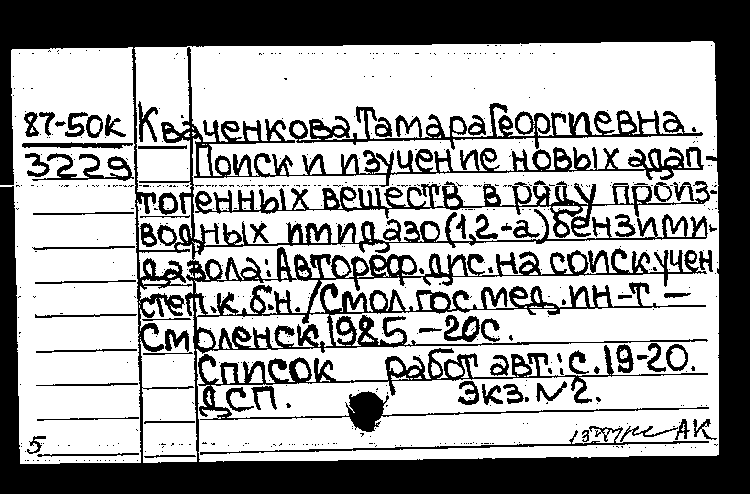 87-50К Кваченкова, Тамара Георгиевна.
3229 Поиск и изучение новых адап-
тогенных веществ в ряду произ-
водных имидазо(1,2-а)бензими-
дазола: Автореф. дис. на соиск. учен.
степ. к. б. н. / Смол. гос. мед. ин-т. –
Смоленск, 1985. – 20 с.
Список работ авт.: с. 19-20.
ДСП. Экз. №2.
5 АК